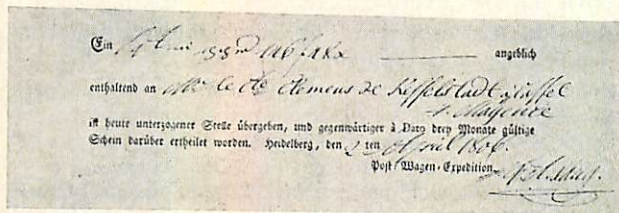 Ein angeblich
enthaltend an Mr le Cte Clemens de Kesselstadt
à Mayence
ist heute unterzogener Stelle übergeben, und gegenwärtiger à Dato drey Monate gültige
Schein darüber ertheilet worden. Heidelberg, den 2 ten April 1806.
Post-Wagen-Expedition